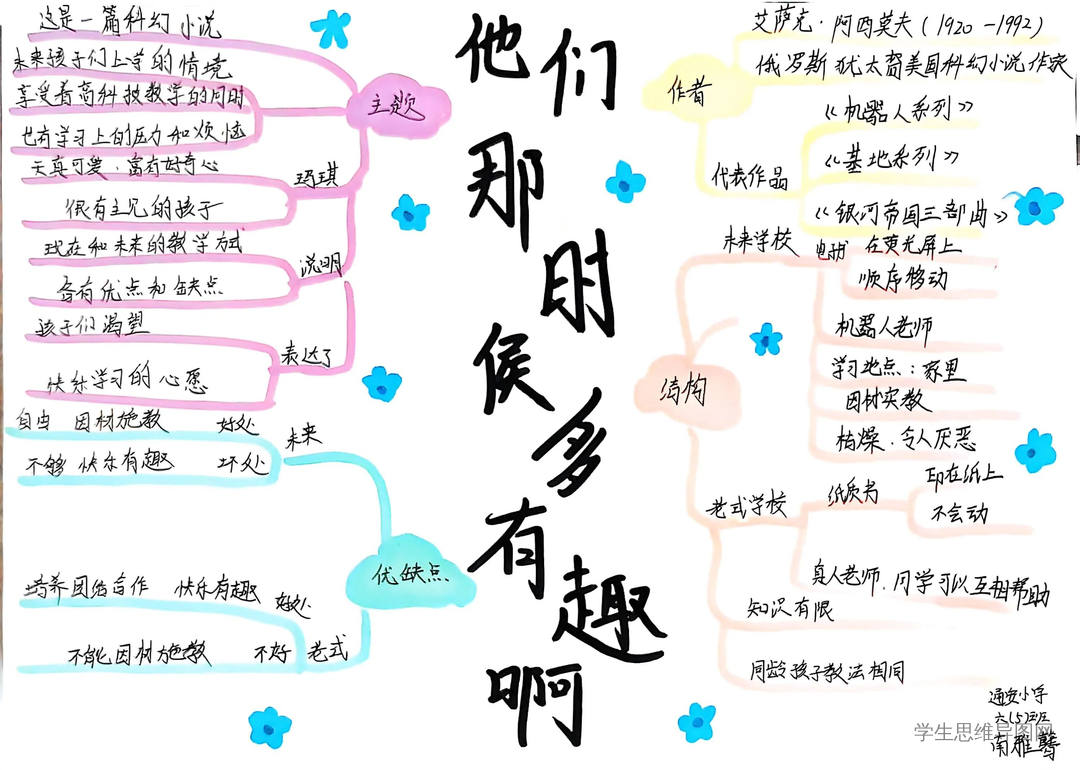 他们那时侯多有趣啊
主题
这是一篇科幻小说
未来孩子们上学的情境
享受着高科技教学的同时
也有学习上的压力和烦恼
玛琪
天真可爱.富有好奇心
很有主见的孩子
说明
现在和未来的教学方式
各有优点和缺点
表达了
孩子们渴望
快乐学习的心愿
优缺点
未来
自由 因材施教 好处
不够 快乐有趣 坏处
老式
培养团结合作 快乐有趣 好处
不能因材施教 不好
作者
艾萨克·阿西莫夫(1920-1992)
俄罗斯犹太裔美国科幻小说作家
代表作品
《机器人系列》
《基地系列》
《银河帝国三部曲》
结构
未来学校
电书
在荧光屏上
顺序移动
机器人老师
学习地点：家里
因材实教
枯燥.令人厌恶
老式学校
纸质书
印在纸上
不会动
真人老师.同学可以互相帮助
知识有限
同龄孩子教法相同
通安小学
六(5)班
南雅
学生思维导图网